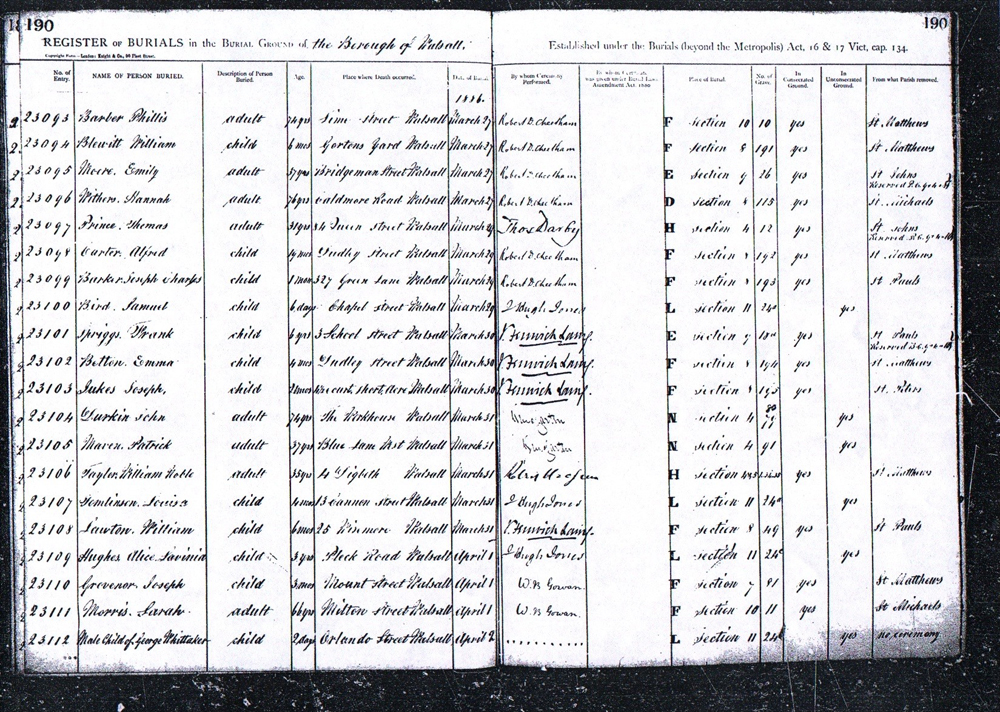 190 190
REGISTER OF BURIALS in the BURIAL GROUND of the Borough of Walsall. Established under the Burials (beyond the Metropolis) Act, 16 & 17 Vict, cap. 134.
No. of Entry. NAME OF PERSON BURIED. Description of Person Buried. Age. Place where Death occurred. Date of Burial By whom Ceremony Performed. Place of Burial. No. of Grave. In Consecrated Ground. In Unconsecrated Ground. From what Parish removed.
1886.
23093 Barber Phillis adult 74 yrs Lime Street Walsall March 27 Robert D. Cheetham F Section 10 10 yes St Matthews
23094 Blewitt William child 6 mos Gortons Yard Walsall March 27 Robert D. Cheetham F Section 8 191 yes St Matthews
23095 Moore. Emily adult Bridgeman Street Walsall March 27 Robert D. Cheetham E Section 9 26 yes St Johns
23096 Withers. Hannah adult 76 yrs Caldmore Road Walsall March 27 Robert D. Cheetham D Section 8 115 yes St. Michaels
23097 Prince. Thomas adult Queen Street Walsall March 29 Thos Darby H Section 4 12 yes St Johns
23098 Carter. Alfred child Dudley Street Walsall March 29 Robert D. Cheetham F Section 8 192 yes St Matthews
23099 Barker Joseph Charles child 1 mos 327 Green Lane Walsall March 29 Robert D. Cheetham F Section 8 193 yes St Pauls
23100 Bird. Samuel child 6 days Chapel Street Walsall March 29 J Hugh Jones L Section 11 240 yes
23101 Spriggs. Frank child 6 yrs 3 School Street Walsall March 30 J. Fenwick Laing. E Section 9 yes St Pauls
23102 Bitton. Emma child 4 mos Dudley Street Walsall March 30 J. Fenwick Laing. F Section 8 194 yes St Matthews
23103 Jukes Joseph, child 2 mos Short Acre Walsall March 30 J. Fenwick Laing. F Section 8 195 yes St. Peters
23104 Durkin John adult 74 yrs The Workhouse Walsall March 31 N Section 4 yes
23105 Maven. Patrick adult 37 yrs Blue Lane West Walsall March 31 N Section 4 91 yes
23106 Taylor. William Noble adult 35 yrs 4 Digbeth Walsall March 31 H Section yes St Matthews
23107 Tomlinson. Louisa child 4 mos 13 Cannon Street Walsall March 31 J Hugh Jones L Section 11 240 yes
23108 Lawton. William child 6 mos 25 Wisemore Walsall March 31 J. Fenwick Laing. F Section 8 49 yes St Pauls
23109 Hughes Alice Lavinia child 3 yrs Pleck Road Walsall April 1 J Hugh Jones L Section 11 240 yes
23110 Grovenor. Joseph child 3 mos Mount Street Walsall April 1 W. B Gowan. F Section 7 81 yes St Matthews
23111 Morris. Sarah. adult 66 yrs Milton Street Walsall April 1 W. B Gowan. F Section 10 11 yes St Michaels
23112 Male Child of George Whittaker child 2 days Orlando Street Walsall April 2 ......... L Section 11 240 yes no ceremony